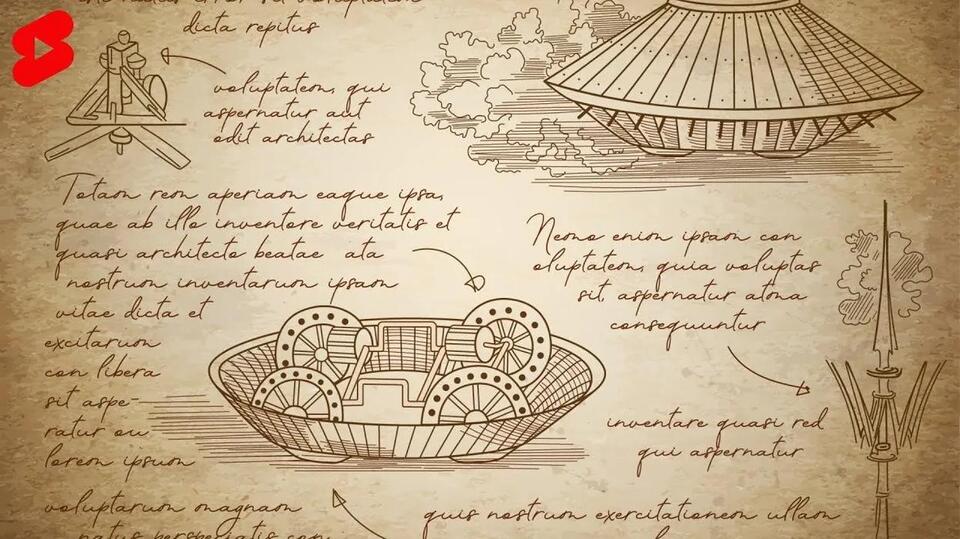 dicta repitus
voluptatem, qui
aspernatur aut
odit architectas
Totam rem aperiam eaque ipsa,
quae ab illo inventore veritatis et
quasi architecto beatae ata
nostrum inventarum ipsam
vitae dicta et
excitarum
con libera
sit aspe-
ratur ou
lorem ipsum
Nemo enim ipsam con
oluptatem, quia voluptas
sit, aspernatur atma
consequuntur
inventare quasi red
qui aspernatur
voluptarum magnam
quis nostrum exercitationem ullam